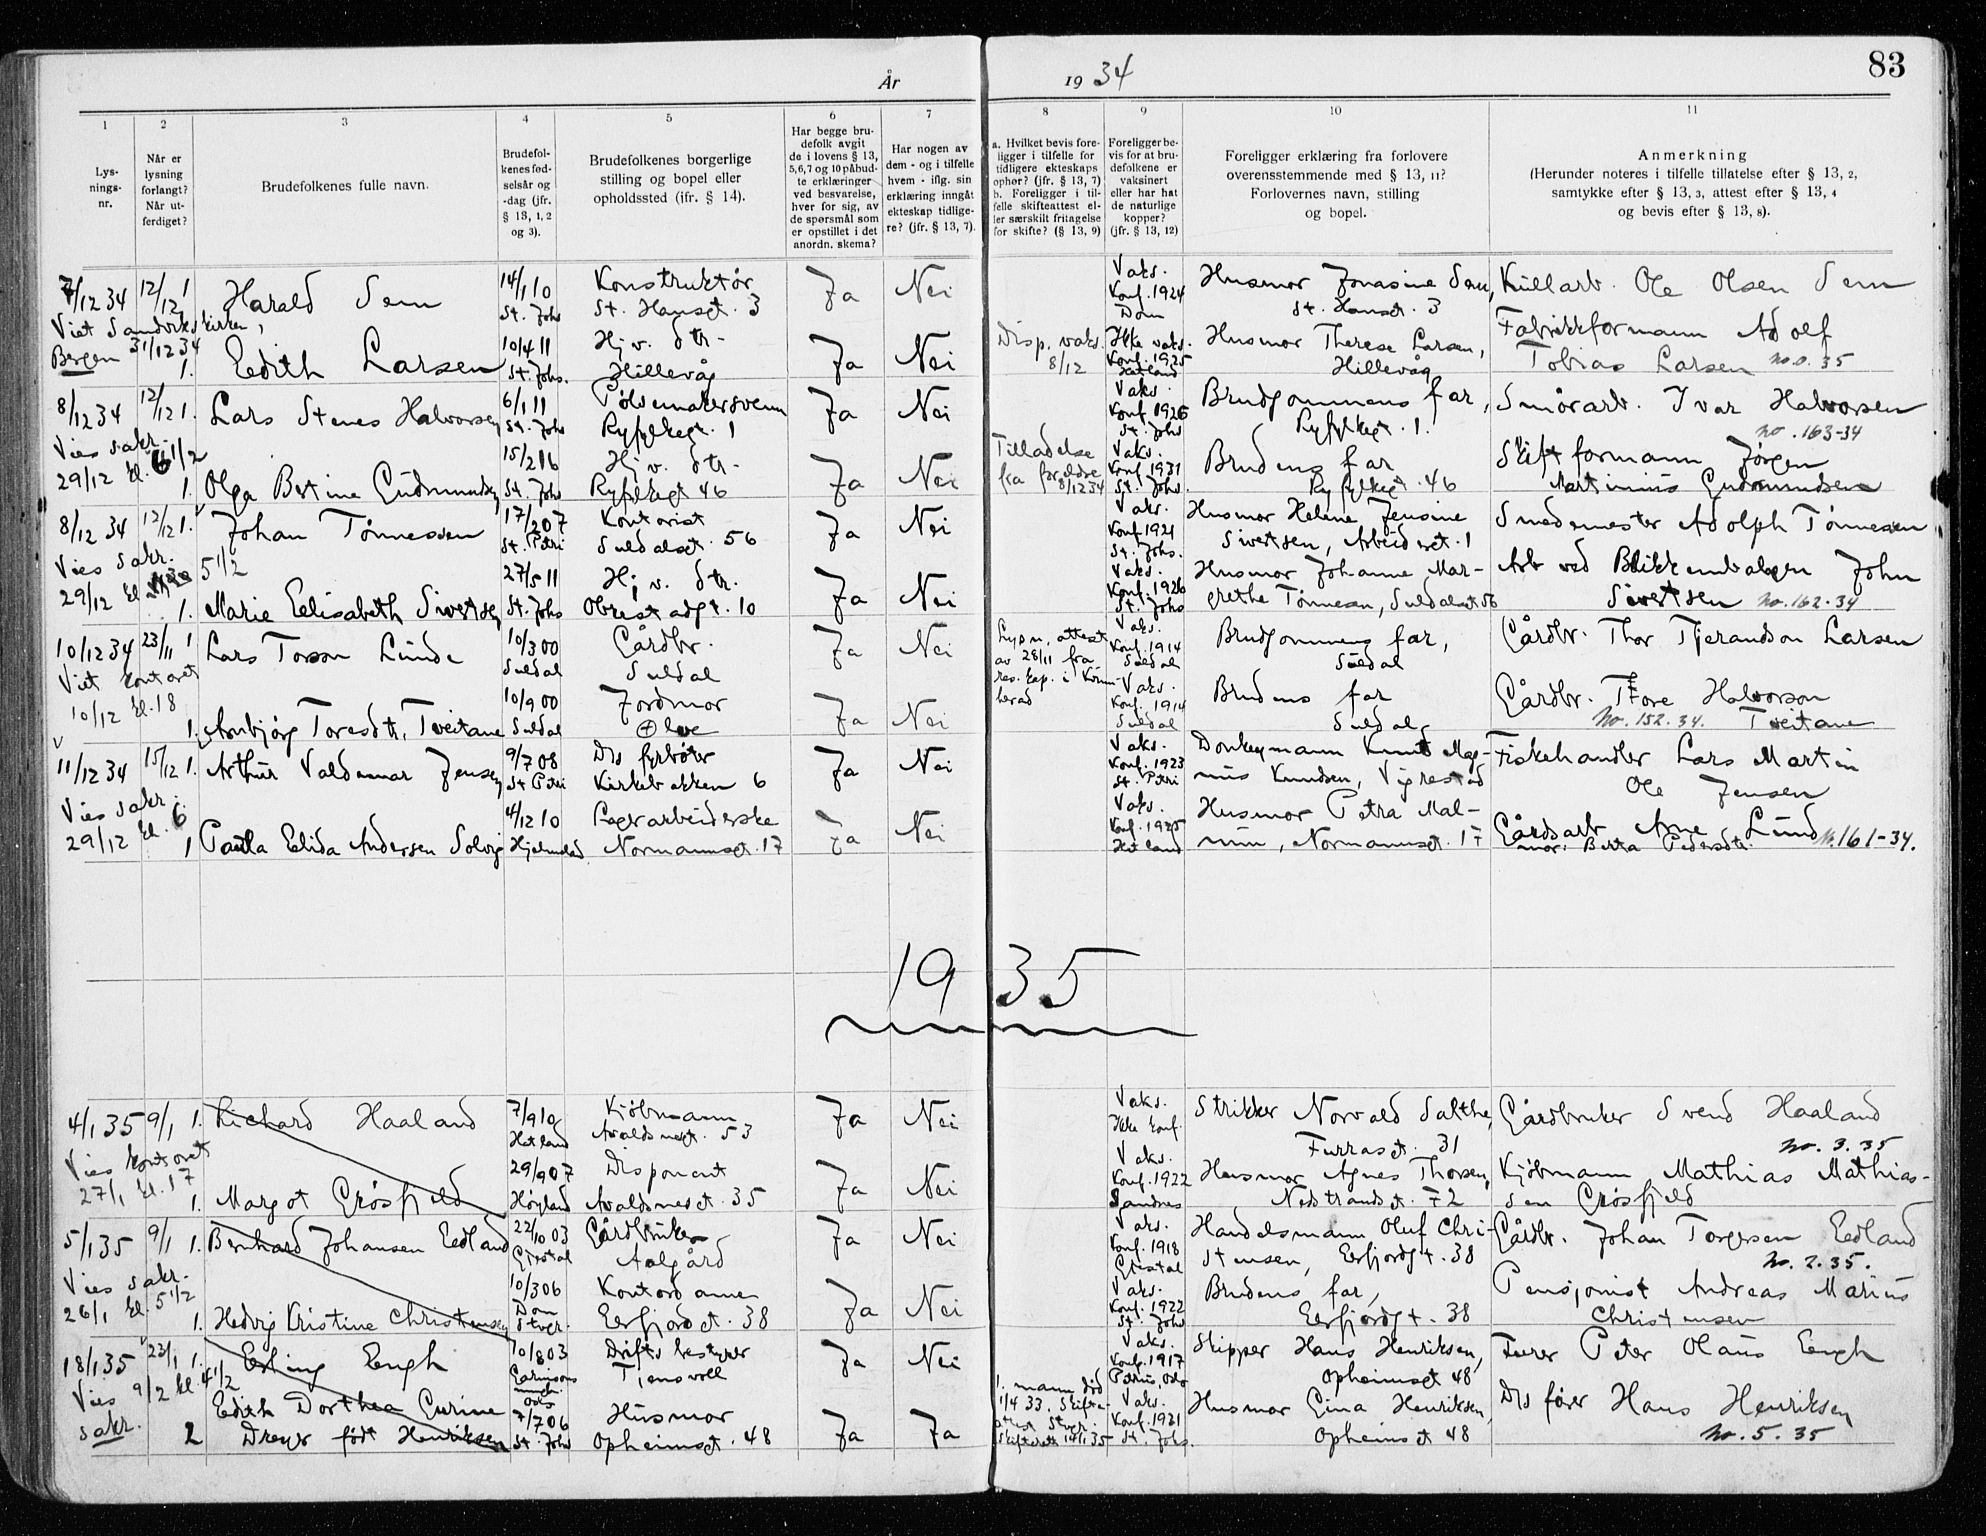 83
År 1934
1 2 3 4 5 6 7 8 9 10 11
Lys-
nings-
nr.
Når er
lysning
forlangt?
Når ut-
ferdiget?
Brudefolkenes fulle navn.
Brudefol-
kenes fød-
selsår og
-dag (jfr.
§ 13, 1, 2
og 3).
Brudefolkenes borgerlige
stilling og bopel eller
opholdssted (jfr. § 14).
Har begge bru-
defolk avgit
de i lovens § 13,
5,6,7 og 10 påbud-
te erklæringer
ved besvarelse,
hver for sig, av
de spørsmål som
er opstillet i det
anordn. skema?
Har nogen av
dem - og i tilfelle
hvem - iflg. sin
erklæring inngåt
ekteskap tidlige-
re? (jfr. § 13, 7).
a. Hvilket bevis fore-
ligger i tilfelle for
tidligere ekteskaps
ophør? (jfr. § 13, 7)
b. Foreligger i til-
felle skifteattest el-
ler særskilt fritagelse
for skifte? (§ 13, 9)
Foreligger be-
vis for at bru-
defolkene er
vaksinert
eller har hat
de naturlige
kopper?
(jfr. § 13, 12)
Foreligger erklæring fra forlovere
overensstemmende med § 13, 11?
Forlovernes navn, stilling
og bopel.
Anmerkning
(Herunder noteres i tilfelle tillatelse efter § 13, 2,
samtykke efter § 13, 3, attest efter § 13, 4
og bevis efter § 13, 8).
7/12 34 12/12 1 Harald Sem 14/1 10 St. Johs Konstruktør St. Hansgt. 3 Ja Nei Vaks. Konf. 1924 Dom Husmor Jonasine Sem, St. Hansgt. 3 Kullarb. Ole Olsen Sem
Viet Sandvikskirken,
Bergen 31/12 34
1. Edith Larsen 10/4 11 St. Johs. Hj. v. Str. Hillevåg Ja Nei Disp. vaks. 8/12 Ikke vaks. Konf. 1925 Hetland Husmor Therese Larsen, Hillevåg Fabrikkformann Adolf Tobias Larsen no 0. 35
8/12 34 12/12 1. Lars Stenes Halvorsen 6/1 11 St. Johs Pølsemakersvenn Ryfylkegt. 1 Ja Nei Vaks. Konf. 1926 St. Johs Brudgommens far, Ryfylkegt. 1. Smørarb. Ivar Halvorsen no. 163-34
Vies sakr.
29/12 kl. 6 1/2
1. Olga Bertine Gudmundsen 15/2 16 St. Johs Hj. v. Str. Ryfylkegt 46 Ja Nei Tilladelse fra forældre 8/12 34 Vaks. Konf. 1931 St. Johs. Brudens far Ryfylkegt. 46 Skiftformann Jørgen Martinius Gudmundsen
8/12 34 12/12 1. Johan Tønnessen 17/2 07 St. Petri Kontorist Suldalsgt. 56 Ja Nei Vaks. Konf. 1921 St. Johs. Husmor Helene Jensine Sivertsen, Arbeidergt. 1 Smedemester Adolph Tønnesen
Vies sakr.
29/12 kl. 5 1/2
1. Marie Elisabeth Sivertsen 27/5 11 St. Johs Hj. v. Str. Obrestadgt. 10 Ja Nei Vaks. Konf. 1926 St. Johs Husmor Johanne Mar-grethe Tønnesen, Suldalsgt 56 Arb ved Blikkemballagen John Sivertsen no. 162. 34
10/12 34 23/11 1 Lars Torson Lunde 10/3 00 Suldal Gårdbr. Suldal Ja Nei Lysn. attest av 28/11 fra res. kap. i Vaks. Konf. 1914 Suldal Brudgommens far, Suldal Gårdbr. Thor Tjerandson Larsen
Viet kontoret
10/12 kl. 18
1. Arnbjørg Toresdtr. Tveitane 10/9 00 Suldal Jordmor Ja Nei Vaks. Konf. 1914 Suldal Brudens far Suldal Gårdbr. Tore Halvorson Tveitane No. 152. 34.
11/12 34 15/12 1. Arthur Valdemar Jensen 9/7 08 St Petri Ds fyrbøter Kirkebakken 6 Ja Nei Vaks. Konf. 1923 St. Petri Donkeymann Knut Mag-nus Knudsen, Vigrestad Fiskehandler Lars Martin Ole Jensen
Vies sakr.
29/12 kl. 6
1 Paula Elida Andersen Solvig 4/12 10 Hjelmeland Lagerarbeiderske Normannsgt. 17 Ja Nei Vaks. Konf. 1925 Hetland Husmor Petra Mal-mim, Normannsgt. 17 Gårdsarb. Arne Lund mor: Berta Pedersdtr. No. 161-34.
1935
4/1 35 9/1 1. Richard Haaland 7/9 10 Hetland Kjøbmann Avaldsnesgt. 53 Ja Nei Vaks. Ikke konf. Strikker Norvald Salthe, Furrasgt. 31 Gårdbruker Svend Haaland no. 3. 35
Vies kontoret
27/1 kl. 17
1. Margot Grøsfjeld 29/9 07 Høyland Disponent Avaldsnesgt. 35 Ja Nei Vaks. Konf. 1922 Sandnes Husmor Agnes Thorsen, Nedstrandsgt. 72 Kjøbmann Mathias Mathias-sen Grøsfjeld
5/1 35 9/1 1. Bernhard Johansen Edland 22/10 03 Gjestal Gårdbruker Aalgård Ja Nei Vaks. Konf. 1918 Gjestal Handelsmann Oluf Chri-stensen, Erfjordgt. 38 Gårdbr. Johan Torgersen Edland No. 2. 35.
Vies sakr.
26/1 kl. 5 1/2
1. Hedvig Kristine Christensen 10/3 06 Dom Stvgr. Kontordame Erfjordgt. 38 Ja Nei Vaks. Konf. 1922 St. Johs Brudens far, Erfjordgt. 38 Pensjonist Andreas Marius Christensen
18/1 35 23/1 1. Erling Engh 10/8 03 Garnisons mengh. Oslo Driftsbestyrer Tjensvoll Ja Nei Vaks. Konf. 1917 Petrus, Oslo Skipper Hans Henriksen, Opheimsgt 48 Furer Peter Olaus Engh
Vies 9/2 kl. 4 1/2
sakr.
2 Edith Dorthea Gurine Dreyer født Henriksen 7/7 06 St. Johs Husmor Opheimsgt. 48 Ja Ja 1. mann død 1/4 33, Skifte-attest Stvgr. Skifterett 14/1 35 Vaks. Konf. 1921 St. Johs. Husmor Gina Henriksen, Opheimsgt 48 Ds fører Hans Henriksen no. 5. 35